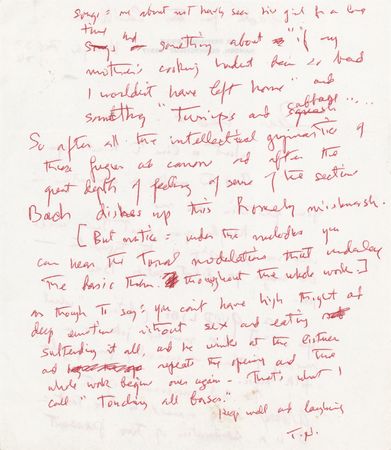 songs = one about not having seen his girl for a long
time and something about "if my
mother's cooking hadn't been so bad
I wouldn't have left home" and
something "Turnips and cabbage ....
So after all the intellectual gymnastics of
these fugues and canons and after the
great depth of feeling of some of the sections
Bach dishes up this homely mishmash.
[But notice = under the melodies you
can hear the tonal modulations that underlay
the basic theme throughout the whole work.]
as though to say: you can't have high thought and
deep emotion without sex and eating
subtending it all, and he winks at the listener
and repeats the opening and the
whole work begins over again - That's what I
call "Touching all bases."
Keep well and laughing
T.N.